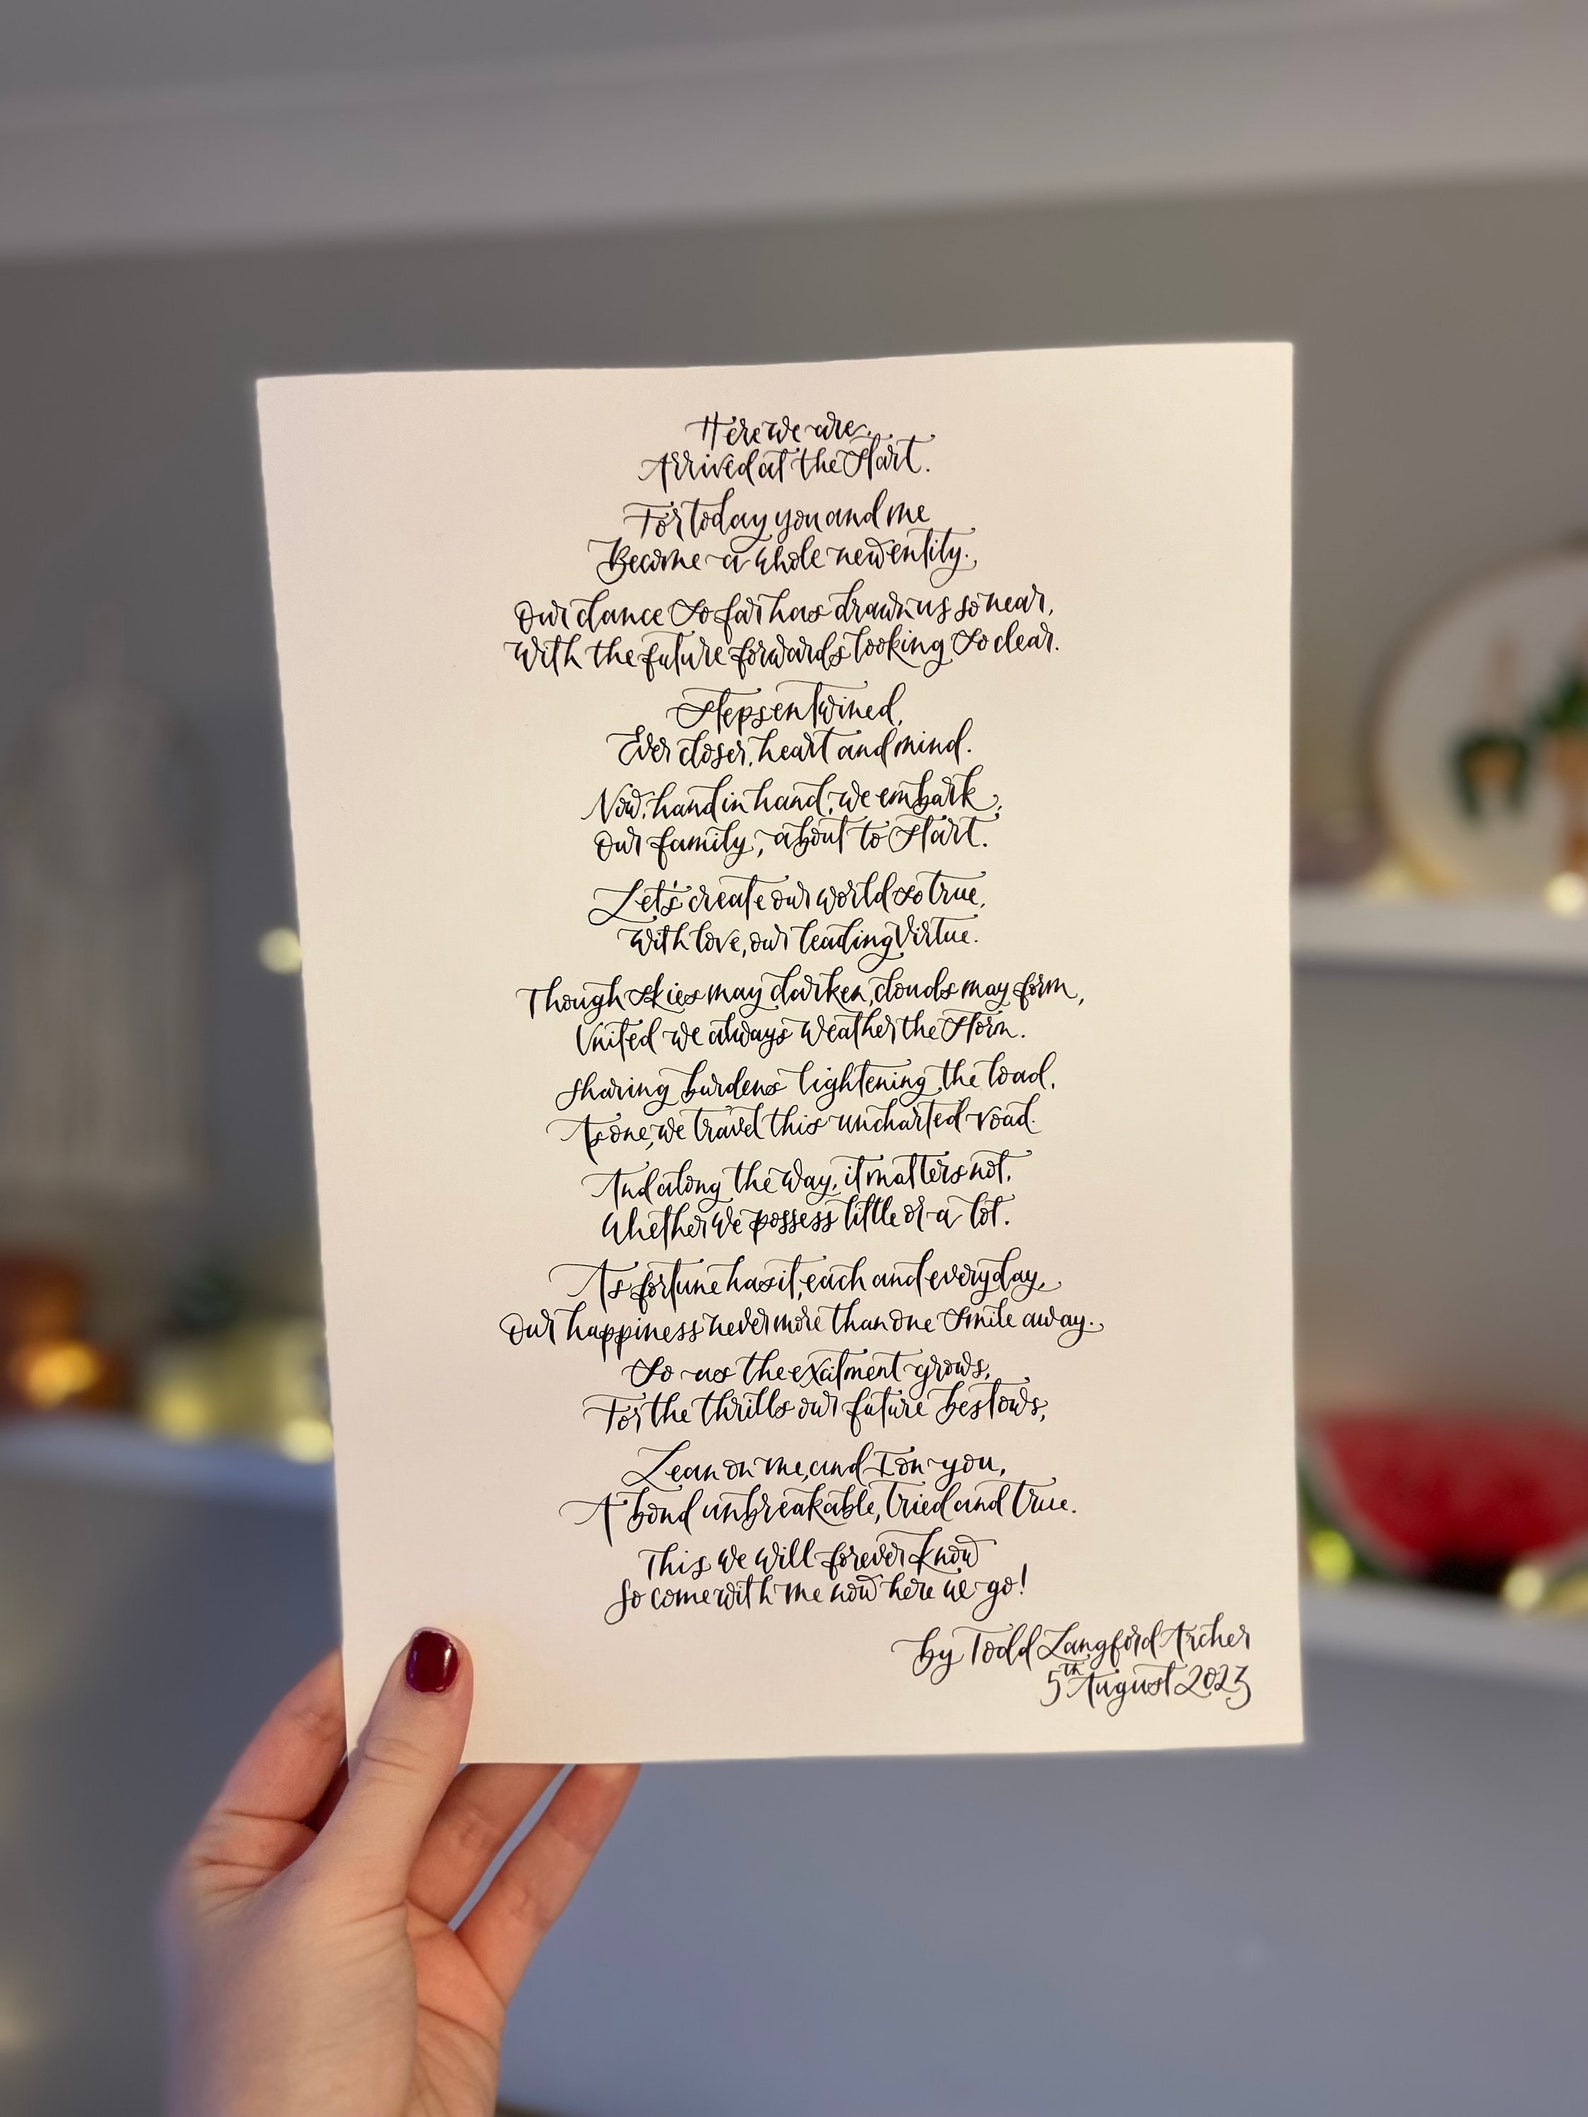 Here we are,
Arrived at the Start.
For today you and me
Become a whole new entity.
Our dance so far has drawn us so near,
With the future forwards looking so clear.
Steps entwined,
Ever closer, heart and mind.
Now, hand in hand, we embark,
Our family, about to Start.
Let's create our world so true,
With love, our leading virtue.
Though skies may darken, clouds may form,
United we always weather the storm.
Sharing burdens lightening the load,
As one, we travel this uncharted road.
And along the way, it matters not,
Whether we possess little or a lot.
As fortune has it, each and everyday,
Our happiness never more than one smile away.
So as the exitment grows,
For the thrills our future bestows,
Lean on me, and I on you,
A bond unbreakable, tried and true.
This we will forever know
So come with me now here we go!
by Todd Langford Archer
5th August 2023